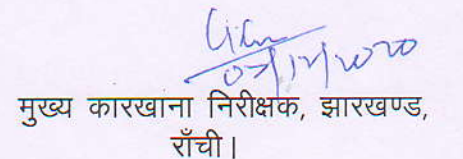 07/12/2020
मुख्य कारखाना निरीक्षक, झारखण्ड,
राँची।